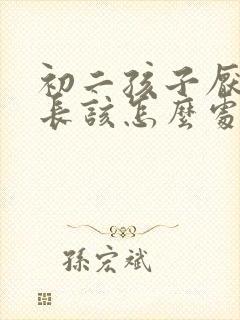 初二孩子厭
長該怎麼處
孫宏斌